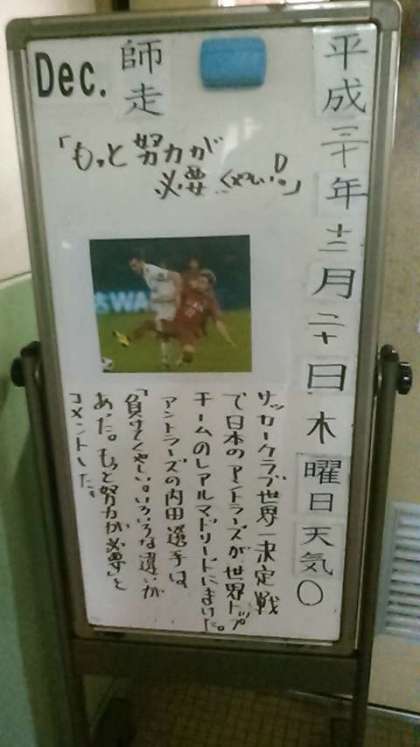 平成三十年十二月二十日木曜日天気○
師走
Dec.
「もっと努力が
必要 くやしい。」
SWA
サッカークラブ世界一決定戦
で日本のアントラーズが世界トップ
チームのレアルマドリードにまけた。
アントラーズの内田選手は
「負けてくやしい。いろいろな違いが
あった。もっと努力が必要」と
コメントした。